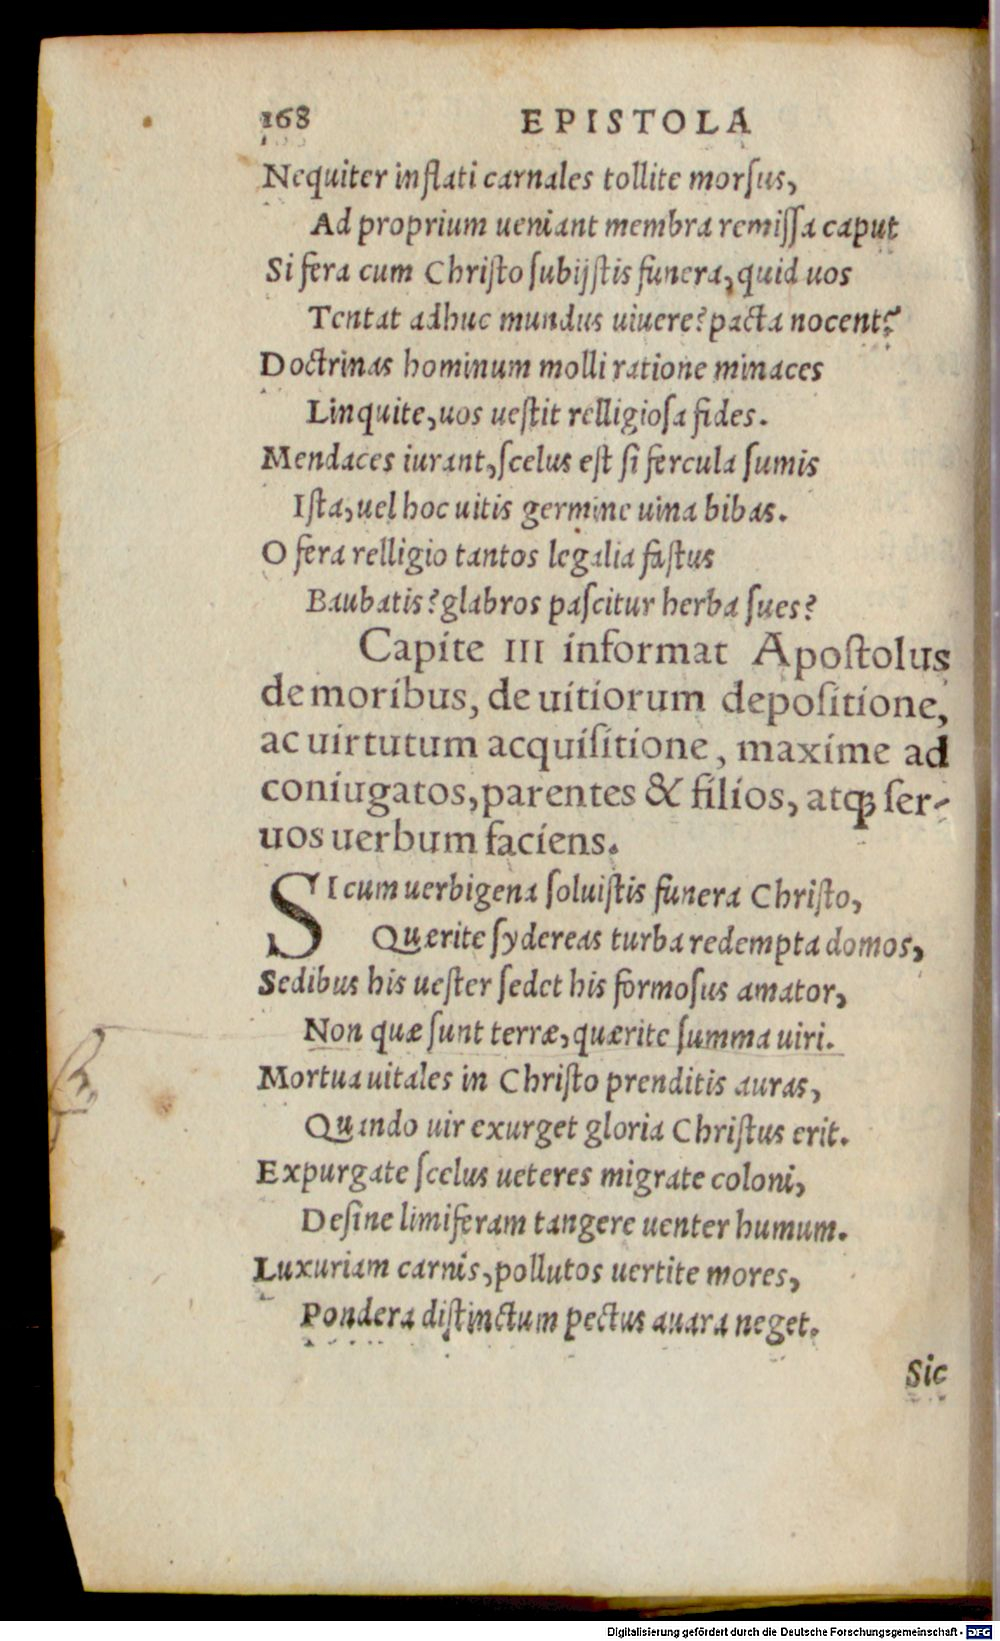 168 EPISTOLA
Nequiter inflati carnales tollite morſus,
Ad proprium ueniant membra remiſſa caput
Si fera cum Chriſto ſubijſtis funera, quid uos
Tentat adhuc mundus uiuere? pacta nocent?
Doctrinas hominum molli ratione minaces
Linquite, uos ueſtit relligioſa fides.
Mendaces iurant, ſcelus eſt ſi fercula ſumis
Iſta, uel hoc uitis germine uina bibas.
O fera relligio tantos legalia faſtus
Baubatis? glabros paſcitur herba ſues?
Capite III informat Apoſtolus
de moribus, de uitiorum depoſitione,
ac uirtutum acquiſitione, maxime ad
coniugatos, parentes & filios, atq; ſer-
uos uerbum faciens.
SI cum uerbigena ſoluiſtis funera Chriſto,
Quærite ſydereas turba redempta domos,
Sedibus his ueſter ſedet his formoſus amator,
Non quæ ſunt terræ, quærite ſumma uiri.
Mortua uitales in Chriſto prenditis auras,
Quando uir exurget gloria Chriſtus erit.
Expurgate ſcelus ueteres migrate coloni,
Deſine limiferam tangere uenter humum.
Luxuriam carnis, pollutos uertite mores,
Pondera diſtinctum pectus auara neget.
Sic
Digitalisierung gefördert durch die Deutsche Forschungsgemeinschaft - DFG